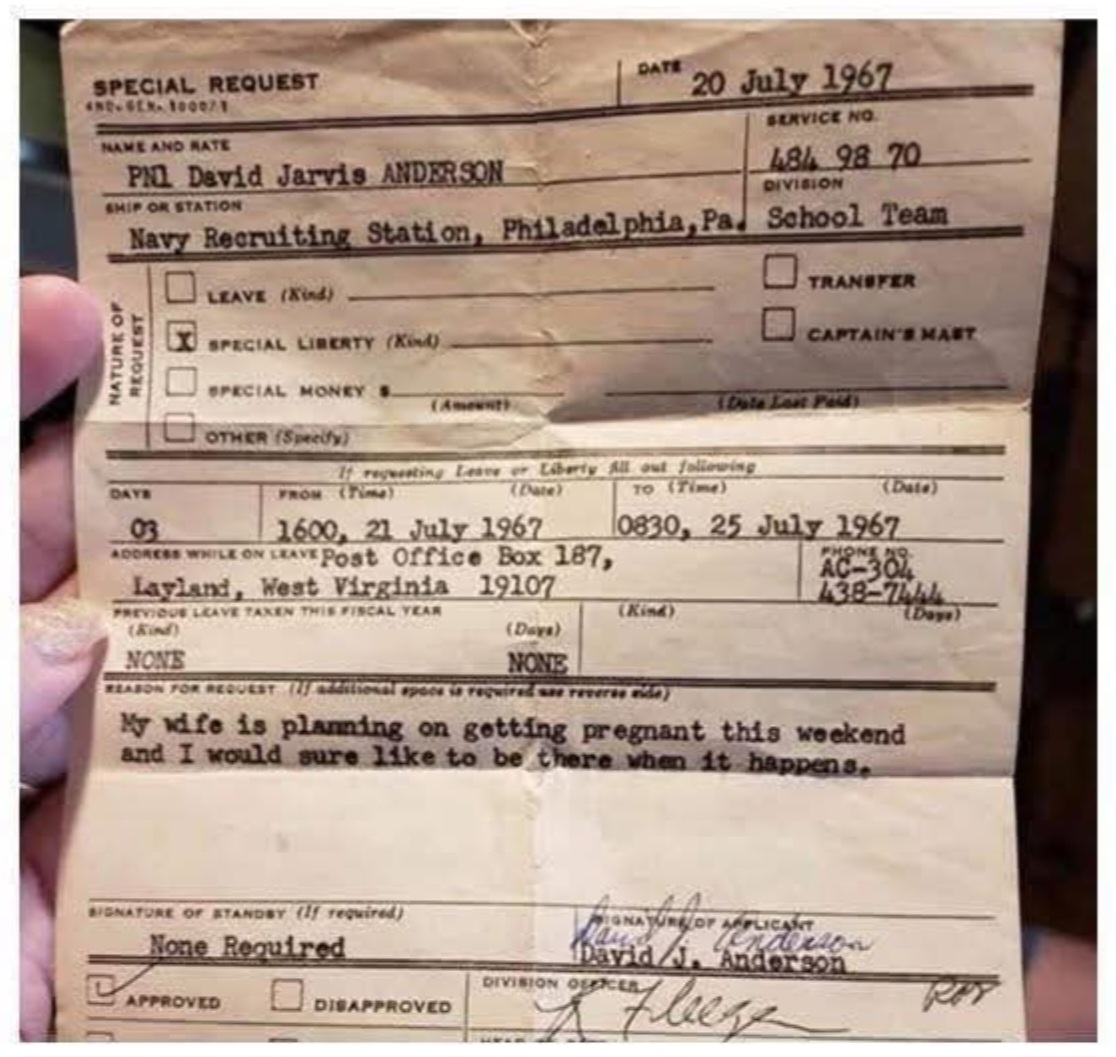 SPECIAL REQUEST
DATE 20 July 1967
NAME AND RATE
PN1 David Jarvis ANDERSON
SERVICE NO.
484 98 70
SHIP OR STATION
Navy Recruiting Station, Philadelphia,Pa.
DIVISION
School Team
NATURE OF REQUEST
LEAVE (Kind)
TRANSFER
X SPECIAL LIBERTY (Kind)
CAPTAIN'S MAST
SPECIAL MONEY $
(Amount) (Date Last Paid)
OTHER (Specify)
If requesting Leave or Liberty fill out following
DAYS FROM (Time) (Date) TO (Time) (Date)
03 1600, 21 July 1967 0830, 25 July 1967
ADDRESS WHILE ON LEAVE Post Office Box 187,
Layland, West Virginia 19107
PHONE NO.
AC-304
438-7444
PREVIOUS LEAVE TAKEN THIS FISCAL YEAR
(Kind) (Days) (Kind) (Days)
NONE NONE
REASON FOR REQUEST (If additional space is required use reverse side)
My wife is planning on getting pregnant this weekend
and I would sure like to be there when it happens.
SIGNATURE OF STANDBY (If required)
None Required
SIGNATURE OF APPLICANT
David J. Anderson
David J. Anderson
APPROVED DISAPPROVED
DIVISION OFFICER